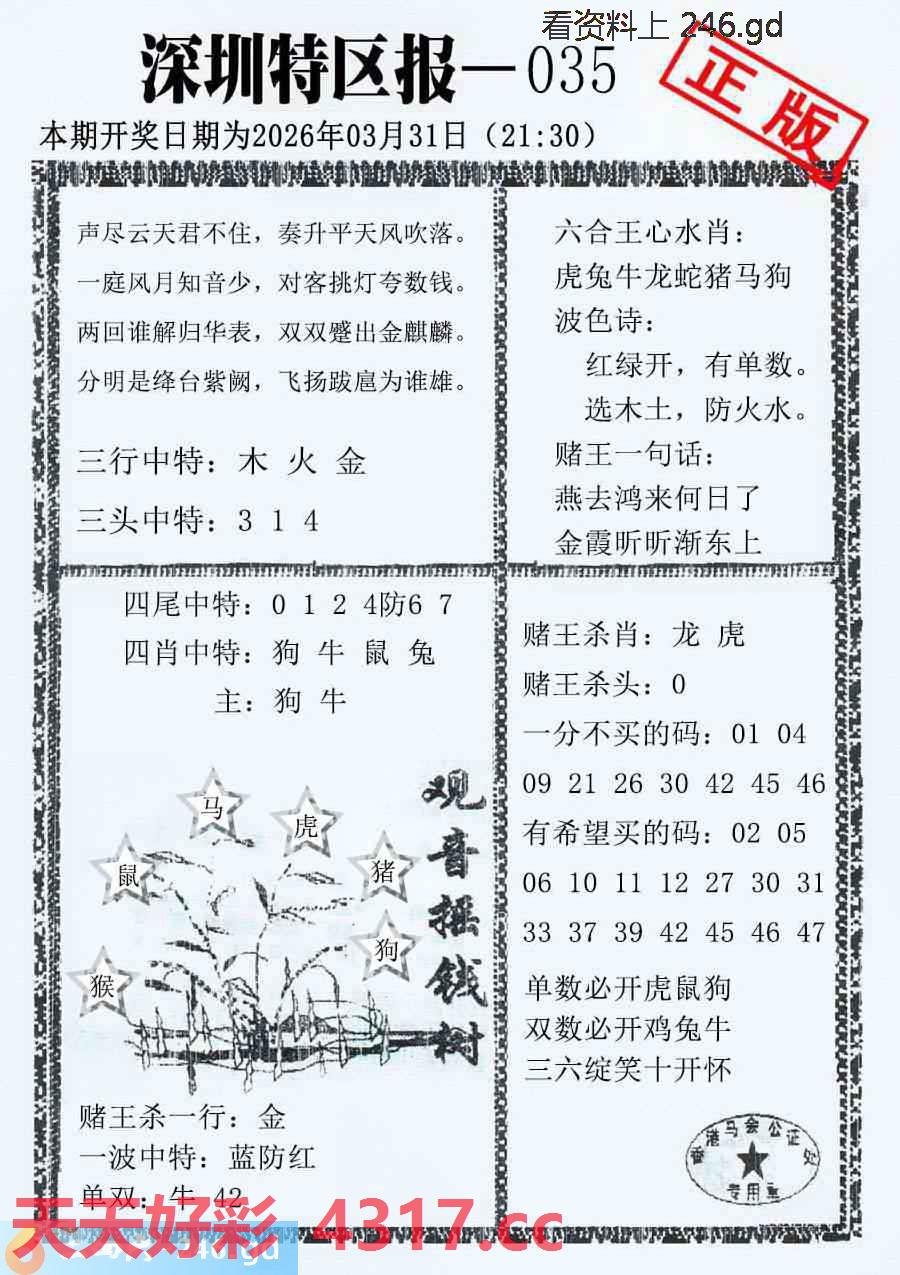 看资料上 246.gd
深圳特区报—035
正版
本期开奖日期为2026年03月31日（21:30）
声尽云天君不住，奏升平天风吹落。
一庭风月知音少，对客挑灯夸数钱。
两回谁解归华表，双双蹙出金麒麟。
分明是绛台紫阙，飞扬跋扈为谁雄。
三行中特：木 火 金
三头中特：3 1 4
六合王心水肖：
虎兔牛龙蛇猪马狗
波色诗：
红绿开，有单数。
选木土，防火水。
赌王一句话：
燕去鸿来何日了
金霞昕昕渐东上
四尾中特：0 1 2 4防6 7
四肖中特：狗 牛 鼠 兔
主：狗 牛
马
虎
鼠
猪
狗
猴
观音摇钱树
赌王杀一行：金
一波中特：蓝防红
单双：牛 42
赌王杀肖：龙 虎
赌王杀头：0
一分不买的码：01 04
09 21 26 30 42 45 46
有希望买的码：02 05
06 10 11 12 27 30 31
33 37 39 42 45 46 47
单数必开虎鼠狗
双数必开鸡兔牛
三六绽笑十开怀
香港马会公证处
专用章
天天好彩 4317.cc
246.gd